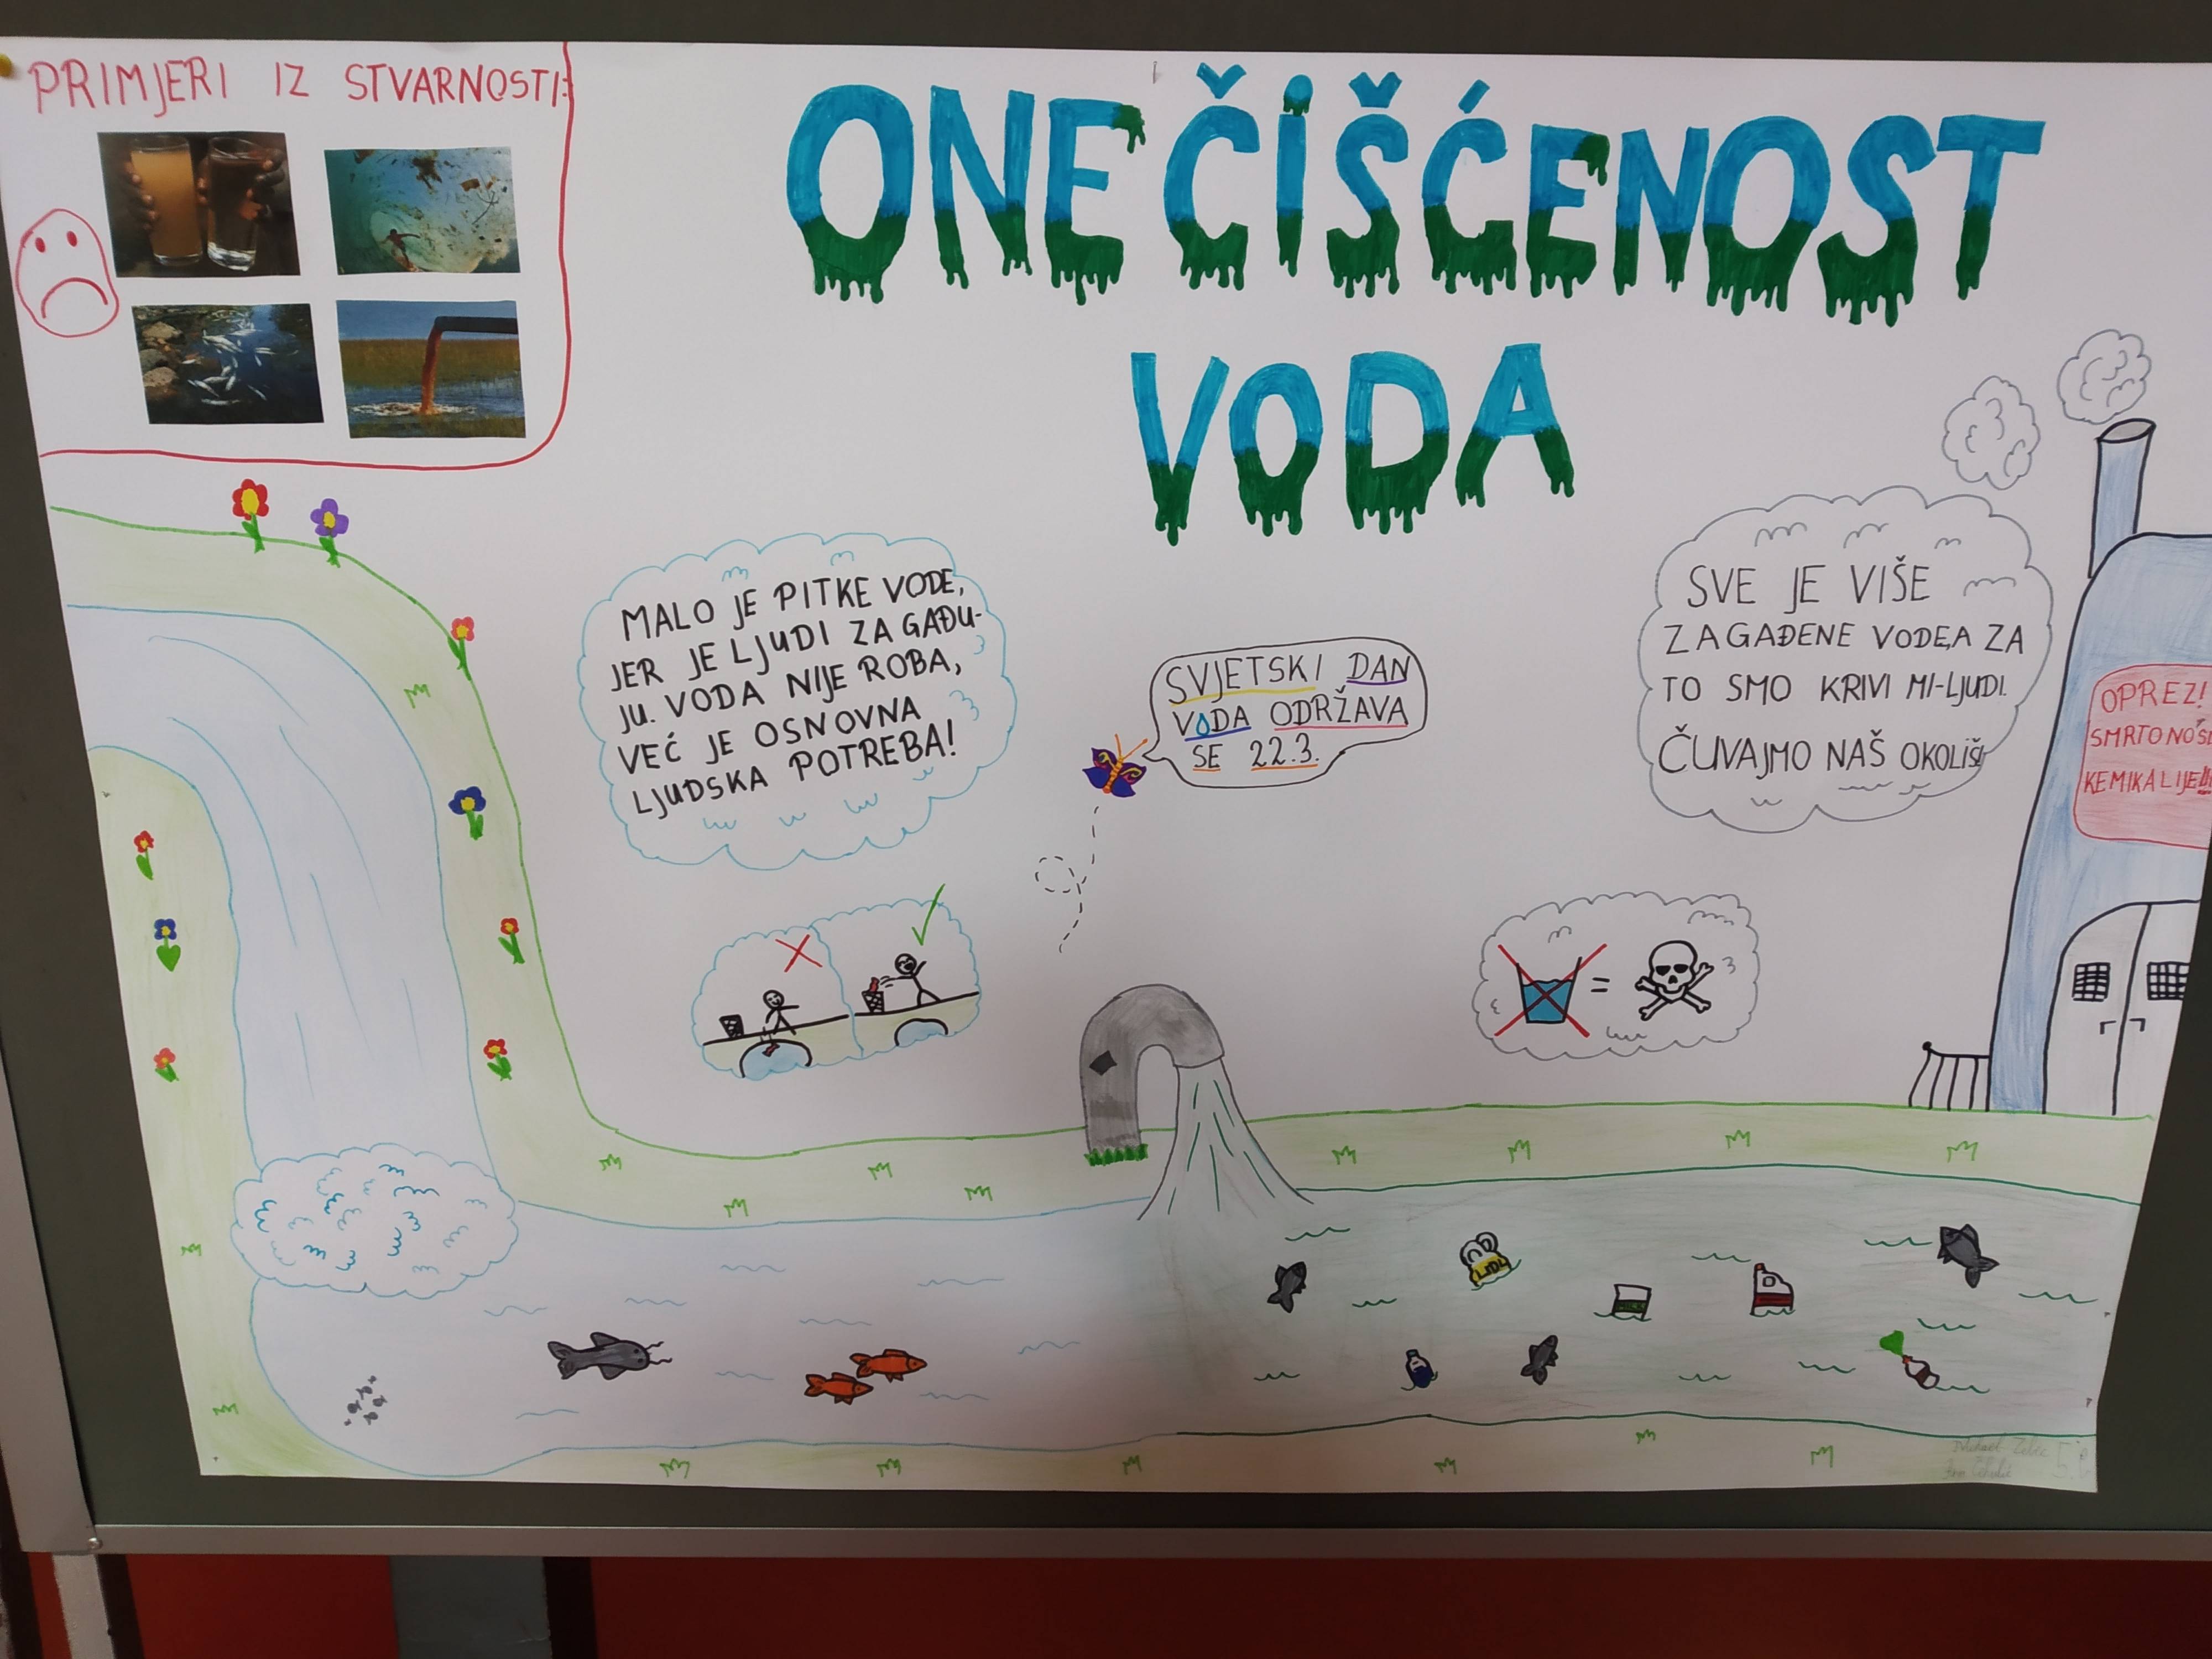 PRIMJERI IZ STVARNOSTI:
ONEČIŠĆENOST
VODA
MALO JE PITKE VODE,
JER JE LJUDI ZAGAĐU-
JU. VODA NIJE ROBA,
VEĆ JE OSNOVNA
LJUDSKA POTREBA!
SVJETSKI DAN
VODA ODRŽAVA
SE 22.3.
SVE JE VIŠE
ZAGAĐENE VODE,A ZA
TO SMO KRIVI MI-LJUDI.
ČUVAJMO NAŠ OKOLIŠ!
OPREZ!
KEMIKALIJE!!
=
LIDL